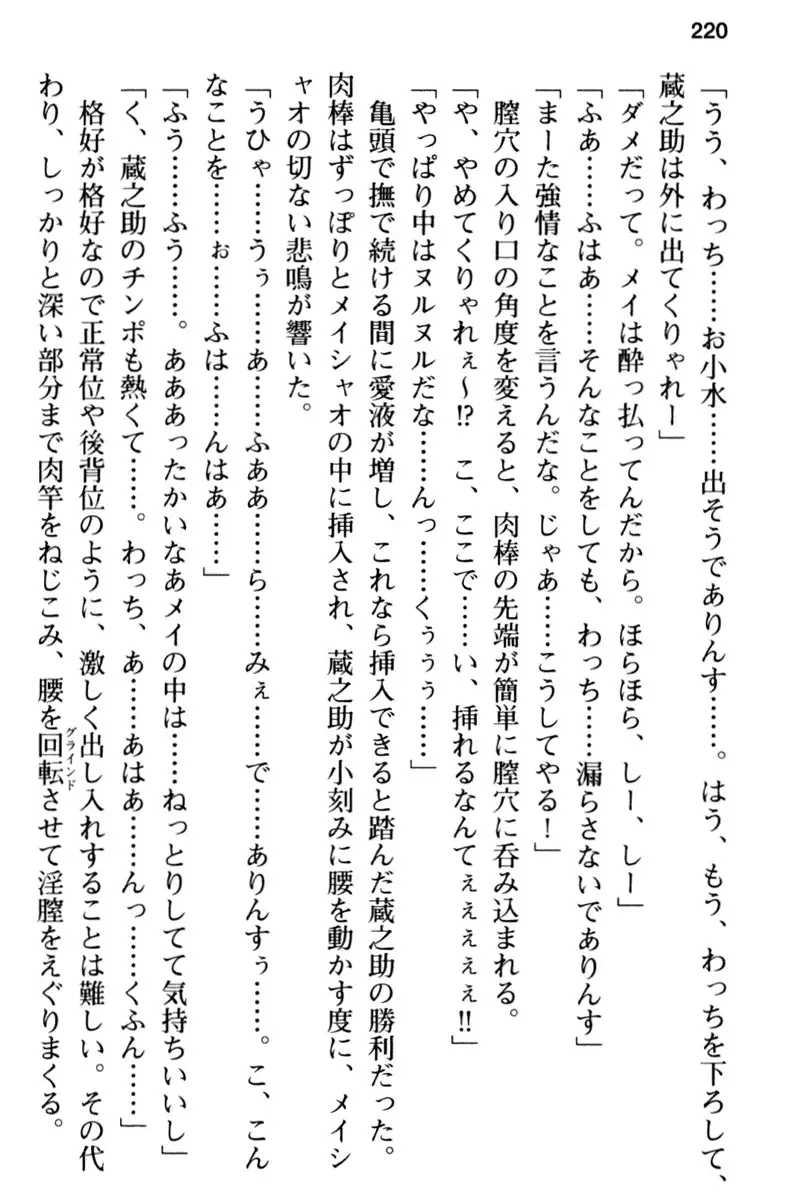 220
「うう、わっち……お小水……出そうでありんす……。はう、もう、わっちを下ろして、
蔵之助は外に出てくりゃれー」
「ダメだって。メイは酔っ払ってんだから。ほらほら、しー、しー」
「ふぁ……ふはあ……そんなことをしても、わっち……漏らさないでありんす」
「まーた強情なことを言うんだな。じゃあ……こうしてやる！」
膣穴の入り口の角度を変えると、肉棒の先端が簡単に膣穴に呑み込まれる。
「や、やめてくりゃれぇ～!?　こ、ここで……い、挿れるなんてぇぇぇぇぇ!!」
「やっぱり中はヌルヌルだな……んっ……くぅぅぅ……」
亀頭で撫で続ける間に愛液が増し、これなら挿入できると踏んだ蔵之助の勝利だった。
肉棒はずっぽりとメイシャオの中に挿入され、蔵之助が小刻みに腰を動かす度に、メイシ
ャオの切ない悲鳴が響いた。
「うひゃ……うぅ……あ……ふああ……ら……みぇ……で……ありんすぅ……。こ、こん
なことを……ぉ……ふは……んはあ……」
「ふう……ふう……。あああったかいなあメイの中は……ねっとりしてて気持ちいいし」
「く、蔵之助のチンポも熱くて……。わっち、あ……あはあ……んっ……くふん……」
格好が格好なので正常位や後背位のように、激しく出し入れすることは難しい。その代
わり、しっかりと深い部分まで肉竿をねじこみ、腰を回転グラインドさせて淫膣をえぐりまくる。